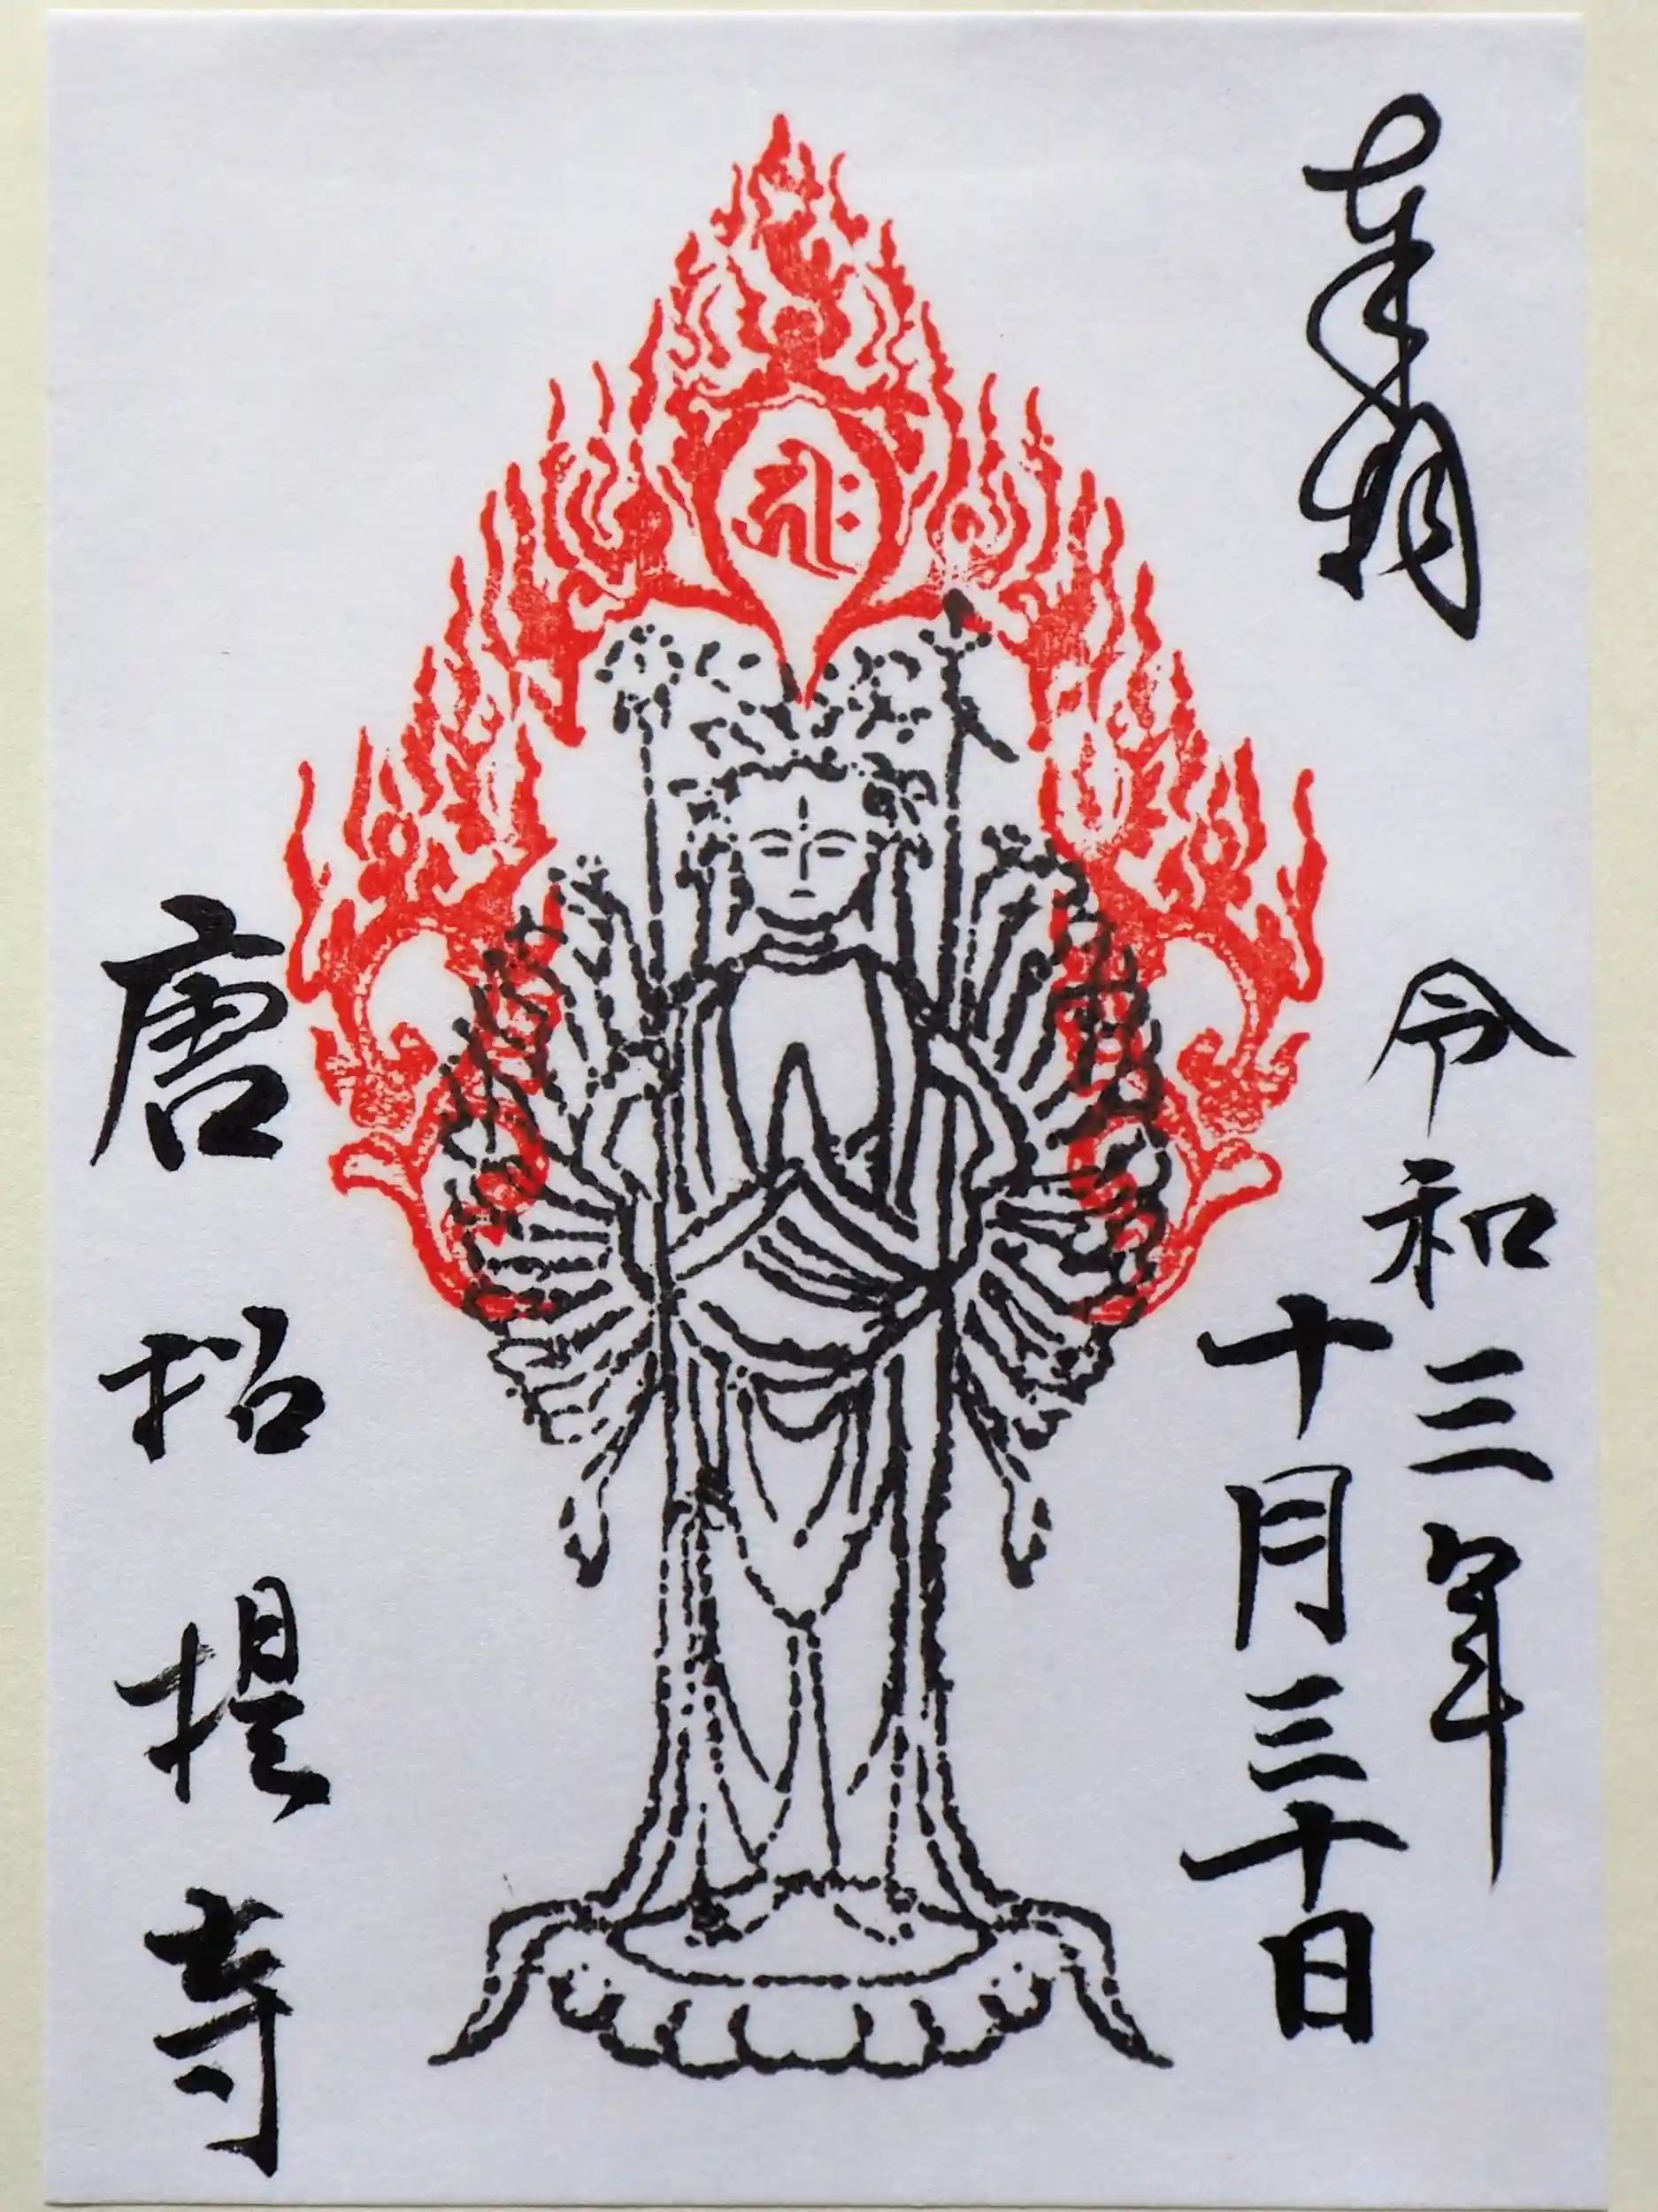 奉拝
令和三年
十月三十日
𑖮𑖿𑖨𑖱𑖾
唐招提寺